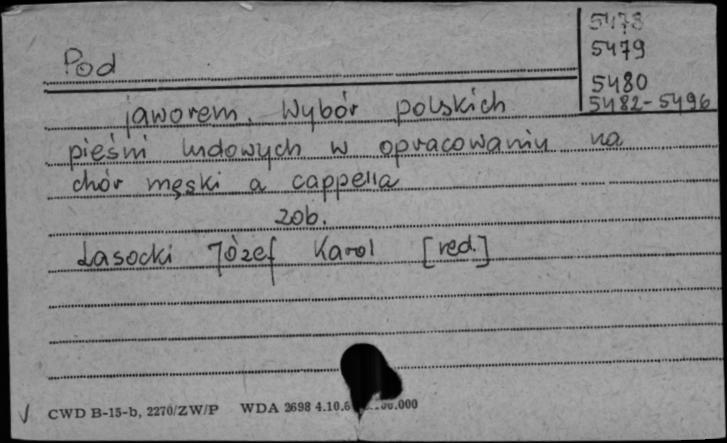 5478
5479
5480
5482-5496
Pod
jaworem. Wybór polskich
pieśni ludowych w opracowaniu na
chór męski a cappella
zob.
Lasocki Józef Karol [red.]
V CWD B-15-b, 2270/ZW/P WDA 2698 4.10.6 .000